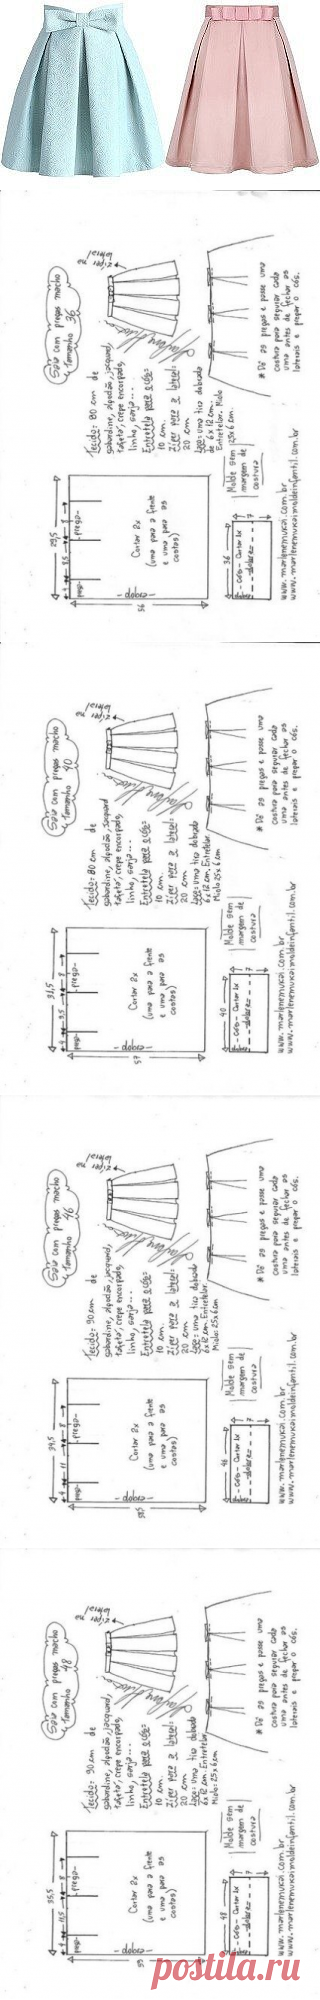 Saia com pregas macho
Tamanho 36
zíper na
lateral
Tecido= 80 cm de
gabardine, algodão, jacquard,
tafetá, crepe encorpado,
linho, sarja...
Entretela para o cós=
10 cm.
Zíper para a lateral=
20 cm
Laço= uma tira dobrada
de 6 x 12 cm.
Entretelar. Miolo
25x6 cm.
# Dê as pregas e passe uma
costura para segurar cada
uma antes de fechar as
laterais e pregar o cós.
29,5
4
8,5
8
prega
-prega-
Cortar 2x
(uma para a frente
e uma para as
costas)
-dobra-
56
36
-Cós- Cortar 1x
-dobra-
7
Molde sem
margem de
costura
www.marlenemukai.com.br
www.marlenemukaimoldeinfantil.com.br
Saia com pregas macho
Tamanho 40
zíper na
lateral
Tecido= 80 cm de
gabardine, algodão, jacquard
tafetá, crepe encorpado,
linho, sarja...
Entretela para o cós=
10 cm.
Zíper para a lateral=
20 cm
Laço= uma tira dobrada
6x12 cm. Entretelar
Miolo 25x6 cm
# Dê as pregas e passe uma
costura para segurar cada
uma antes de fechar as
laterais e pregar o cós.
31,5
4
9,5
8
prega
-prega-
Cortar 2x
(uma para a frente
e uma para as
costas)
-dobra-
57
40
-Cós- Cortar 1x
-dobra-
7
Molde sem
margem de
costura
www.marlenemukai.com.br
www.marlenemukaimoldeinfantil.com.br
Saia com pregas macho
Tamanho 46
zíper na
lateral
Tecido= 90 cm de
gabardine, algodão, jacquard,
tafetá, crepe encorpado,
linho, sarja...
Entretela para o cós=
10 cm.
Zíper para a lateral=
20 cm
Laço= uma tira dobrada
6x12 cm. Entretelar
Miolo: 25x6 cm
# Dê as pregas e passe uma
costura para segurar cada
uma antes de fechar as
laterais e pregar o cós.
34,5
4
11
8
prega
-prega-
Cortar 2x
(uma para a frente
e uma para as
costas)
-dobra-
58,5
46
-Cós- Cortar 1x
-dobra-
7
Molde sem
margem de
costura
www.marlenemukai.com.br
www.marlenemukaimoldeinfantil.com.br
Saia com pregas macho
Tamanho 48
zíper na
lateral
Tecido= 90 cm de
gabardine, algodão, jacquard,
tafetá, crepe encorpado,
linho, sarja...
Entretela para o cós=
10 cm.
Zíper para a lateral=
20 cm
Laço= uma tira dobrada
6x12 cm. Entretelar
Miolo: 25x6 cm
# Dê as pregas e passe uma
costura para segurar cada
uma antes de fechar as
laterais e pregar o cós.
35,5
4
11,5
8
prega
-prega-
Cortar 2x
(uma para a frente
e uma para as
costas)
-dobra-
48
-Cós- Cortar 1x
-dobra-
7
Molde sem
margem de
costura
www.marlenemukai.com.br
www.marlenemukaimoldeinfantil.com.br
postila.ru